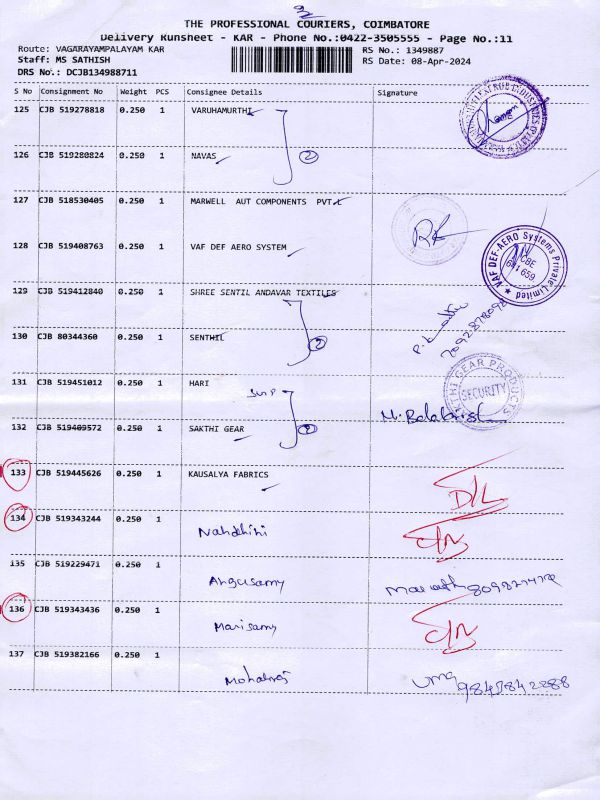 2
THE PROFESSIONAL COURIERS, COIMBATORE
Delivery Runsheet - KAR - Phone No.:0422-3505555 - Page No.:11
Route: VAGARAYAMPALAYAM KAR RS No.: 1349887
Staff: MS SATHISH RS Date: 08-Apr-2024
DRS No.: DCJB134988711
S No Consignment No Weight PCS Consignee Details Signature
125 CJB 519278818 0.250 1 VARUHAMURTHI
126 CJB 519280824 0.250 1 NAVAS 2
127 CJB 518530405 0.250 1 MARWELL AUT COMPONENTS PVT
RK
128 CJB 519408763 0.250 1 VAF DEF AERO SYSTEM
VAF DEF-AERO Systems Private Limited
CBE
641 659
129 CJB 519412840 0.250 1 SHREE SENTIL ANDAVAR TEXTILES
130 CJB 80344360 0.250 1 SENTHIL 2
131 CJB 519451012 0.250 1 HARI
GEAR PRODUCTS
SECURITY
132 CJB 519409572 0.250 1 SAKTHI GEAR 2
133 CJB 519445626 0.250 1 KAUSALYA FABRICS D/L
134 CJB 519343244 0.250 1 Nandhini
135 CJB 519229471 0.250 1 Angusamy
136 CJB 519343436 0.250 1 Marisamy
137 CJB 519382166 0.250 1 Mohanraj uma 9847842288